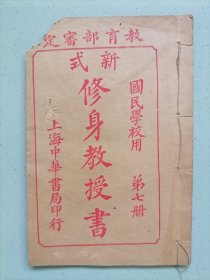 教育部審定
新式
國民學校用
第七册
修身教授書
上海中華書局印行